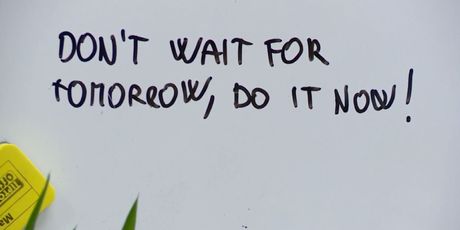 DON'T WAIT FOR
TOMORROW, DO IT NOW!